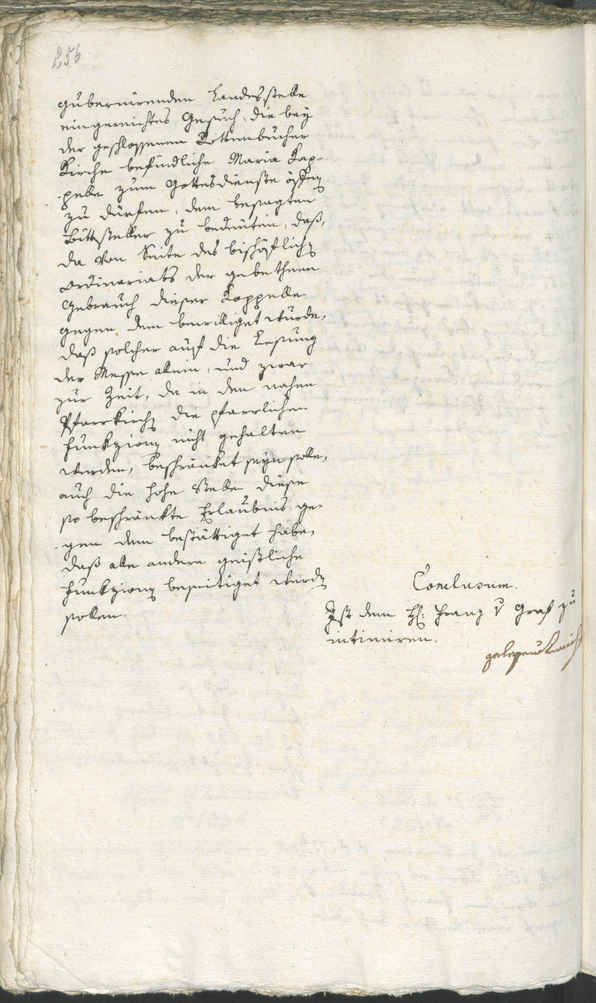 256
gubernirenden Landesstelle
eingereichtes Gesuch, die bey
der geschlossenen Rottenbucher
Kirche befindliche Maria Kap-
pelle zum Gottesdienste öffnen
zu dürfen, dem besagten
Bittsteller zu bedeuten, daß,
da von Seite des bischöflichen
Ordinariats der gebethene
Gebrauch dieser Kappelle
gegen dem bewilliget wurde,
daß solcher auf die Lesung
der Messe allein, und zwar
zur Zeit, da in den nahen
Pfarrkirchen die pfarrlichen
Funkzionen nicht gehalten
werden, beschränket seyn solle,
auch die hohe Stelle diese
so beschränkte Erlaubnis ge-
gen dem bestättiget habe,
daß alle andere geistliche
Funkzionen beseitiget werden
sollen.
Conclusum.
Ist dem H: Franz v Graf zu
intimiren.